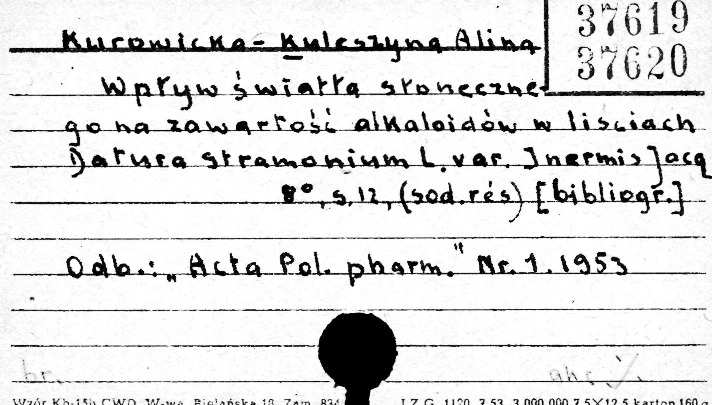 37619
37620
Kurowicka-Kuleszyna Alina
Wpływ światła słoneczne-
go na zawartość alkaloidów w lisciach
Datura stramonium L. var. Inermis Jacq
8°, s. 12, (sod. rés) [bibliogr.]
Odb.: „Acta Pol. pharm." Nr. 1. 1953
br.
Wzór Kb-15b CWD, W-wa, Bielańska 18. Zam. 834
LZG. 1120 7.53 3.000.000 7,5×12,5 karton 160 g